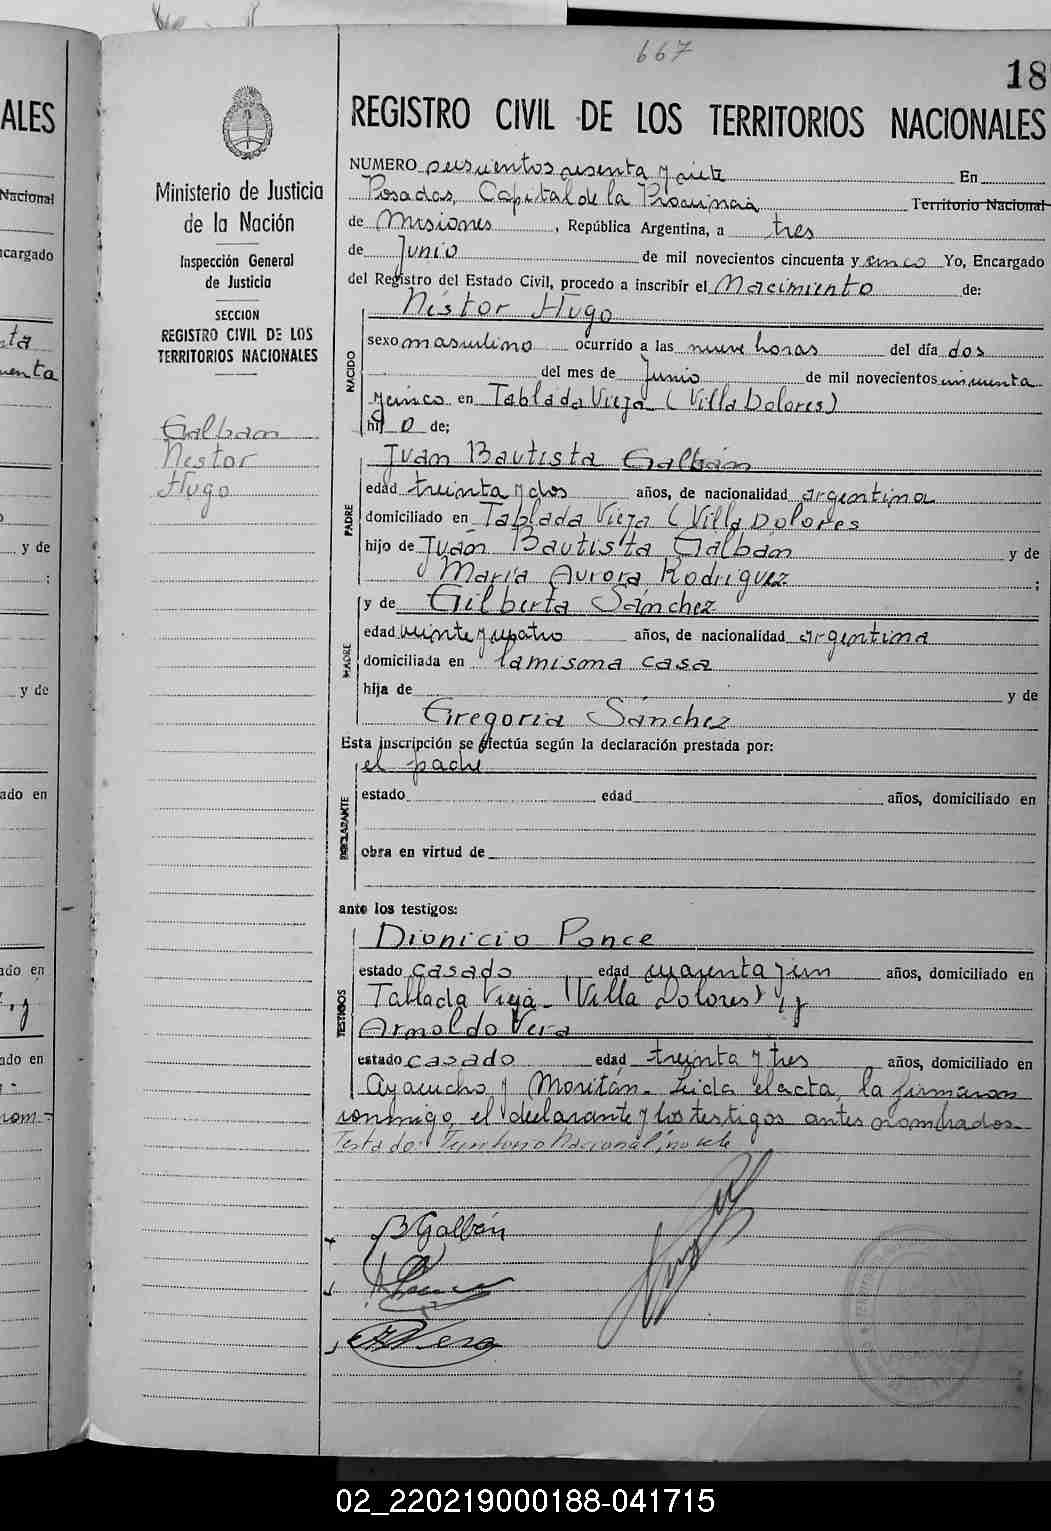 667
18
ALES
REGISTRO CIVIL DE LOS TERRITORIOS NACIONALES
Ministerio de Justicia
de la Nación
Inspección General
de Justicia
SECCION
REGISTRO CIVIL DE LOS
TERRITORIOS NACIONALES
Galban
Nestor
Hugo
NUMERO seiscientos sesenta y siete En
Posadas, Capital de la Provincia Territorio Nacional
de Misiones, República Argentina, a tres
de Junio de mil novecientos cincuenta y cinco Yo, Encargado
del Registro del Estado Civil, procedo a inscribir el Nacimiento de:
Néstor Hugo
NACIDO
sexo masculino ocurrido a las nueve horas del día dos
del mes de Junio de mil novecientos cincuenta
y cinco en Tablada Vieja (Villa Dolores)
hijo de;
Juan Bautista Galbán
PADRE
edad treinta y dos años, de nacionalidad argentina
domiciliado en Tablada Vieja (Villa Dolores
hijo de Juan Bautista Galbán y de
María Aurora Rodríguez ;
y de Gilberta Sánchez
MADRE
edad veinte y cuatro años, de nacionalidad argentina
domiciliada en la misma casa
hija de y de
Gregoria Sánchez
Esta inscripción se efectúa según la declaración prestada por:
el padre
DECLARANTE
estado edad años, domiciliado en
obra en virtud de
ante los testigos:
Dionicio Ponce
TESTIGOS
estado casado edad cuarenta y un años, domiciliado en
Tablada Vieja - (Villa Dolores) y
Arnoldo Vera
estado casado edad treinta y tres años, domiciliado en
Ayacucho y Moritán. Leida el acta, la firmaron
conmigo, el declarante y los testigos antes nombrados.
Testado: Territorio Nacional, no vale
B Galbán
Vera
Nacional
ncargado
y de
;
y de
ado en
ado en
ado en
02_220219000188-041715